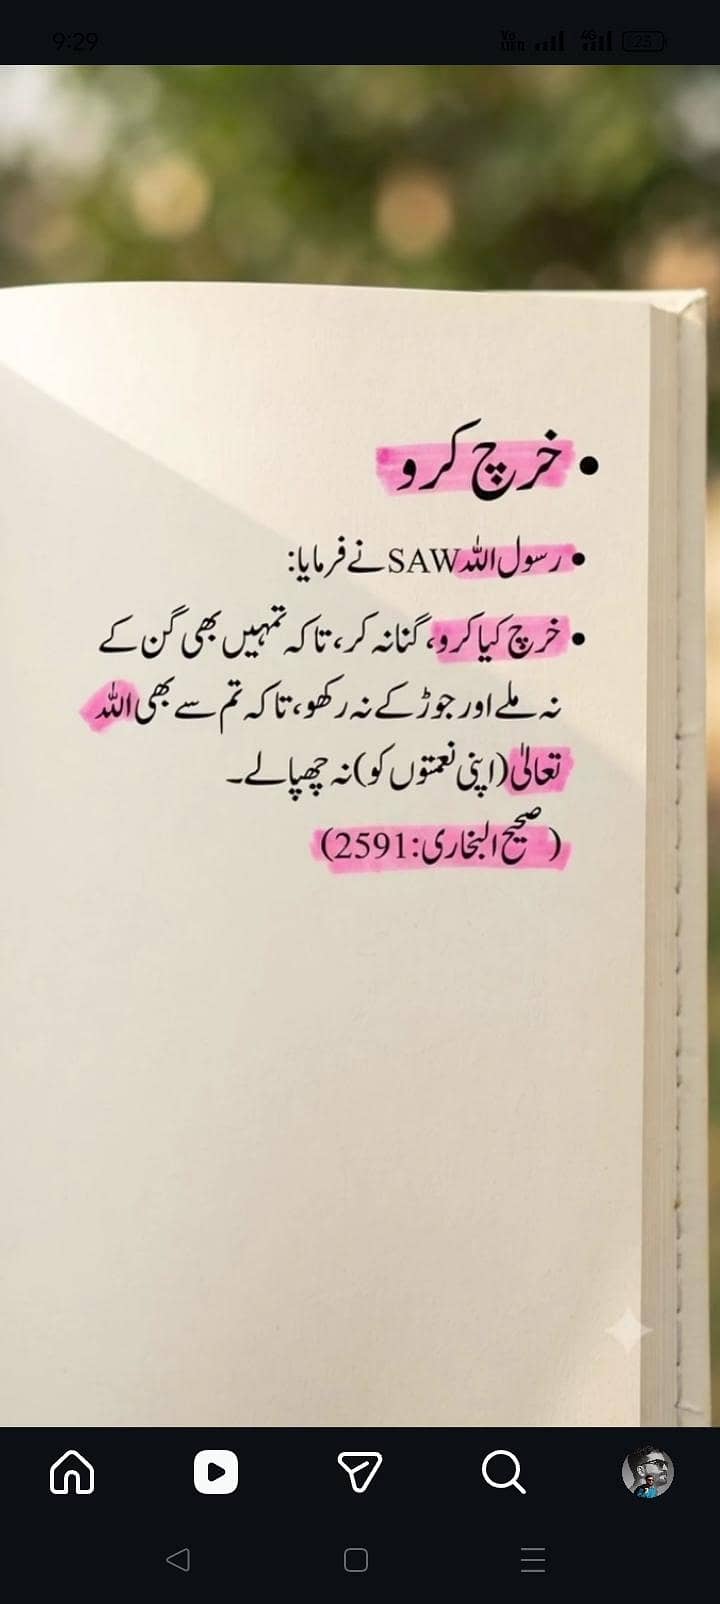 9:29
Vo LTE 4G 23
• خرچ کرو
• رسول اللہ SAW نے فرمایا:
• خرچ کیا کرو، گنا نہ کر، تاکہ تمہیں بھی گن کے
نہ ملے اور جوڑ کے نہ رکھو، تاکہ تم سے بھی اللہ
تعالیٰ (اپنی نعمتوں کو) نہ چھپا لے۔
(صحیح البخاری: 2591)